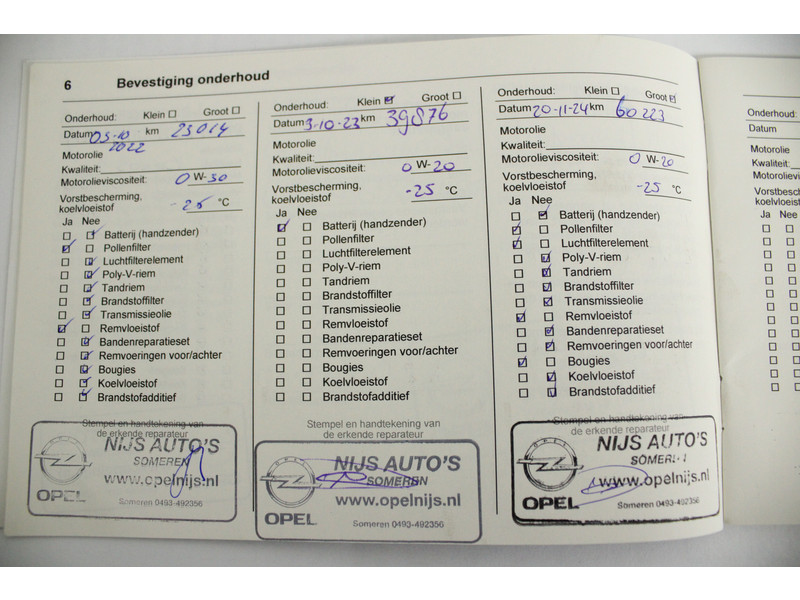 6 Bevestiging onderhoud
Onderhoud: Klein Groot
Datum 05-10 2022 km 23014
Motorolie
Kwaliteit:
Motorolieviscositeit: 0 W-30
Vorstbescherming,
koelvloeistof -25 °C
Ja Nee
Batterij (handzender)
Pollenfilter
Luchtfilterelement
Poly-V-riem
Tandriem
Brandstoffilter
Transmissieolie
Remvloeistof
Bandenreparatieset
Remvoeringen voor/achter
Bougies
Koelvloeistof
Brandstofadditief
Stempel en handtekening van
de erkende reparateur
NIJS AUTO'S
SOMEREN
www.opelnijs.nl
OPEL
Someren 0493-492356
Onderhoud: Klein Groot
Datum 3-10-23 km 39876
Motorolie
Kwaliteit:
Motorolieviscositeit: 0 W-20
Vorstbescherming,
koelvloeistof -25 °C
Ja Nee
Batterij (handzender)
Pollenfilter
Luchtfilterelement
Poly-V-riem
Tandriem
Brandstoffilter
Transmissieolie
Remvloeistof
Bandenreparatieset
Remvoeringen voor/achter
Bougies
Koelvloeistof
Brandstofadditief
Stempel en handtekening van
de erkende reparateur
NIJS AUTO'S
SOMEREN
www.opelnijs.nl
OPEL
Someren 0493-492356
Onderhoud: Klein Groot
Datum 20-11-24 km 60223
Motorolie
Kwaliteit:
Motorolieviscositeit: 0 W-20
Vorstbescherming,
koelvloeistof -25 °C
Ja Nee
Batterij (handzender)
Pollenfilter
Luchtfilterelement
Poly-V-riem
Tandriem
Brandstoffilter
Transmissieolie
Remvloeistof
Bandenreparatieset
Remvoeringen voor/achter
Bougies
Koelvloeistof
Brandstofadditief
Stempel en handtekening van
de erkende reparateur
OPEL
NIJS AUTO'S
SOMEREN
www.opelnijs.nl
OPEL
Someren 0493-492356
Onderhoud:
Datum
Motorolie
Kwaliteit:
Motorolievi
Vorstbesc
koelvloeist
Ja Nee